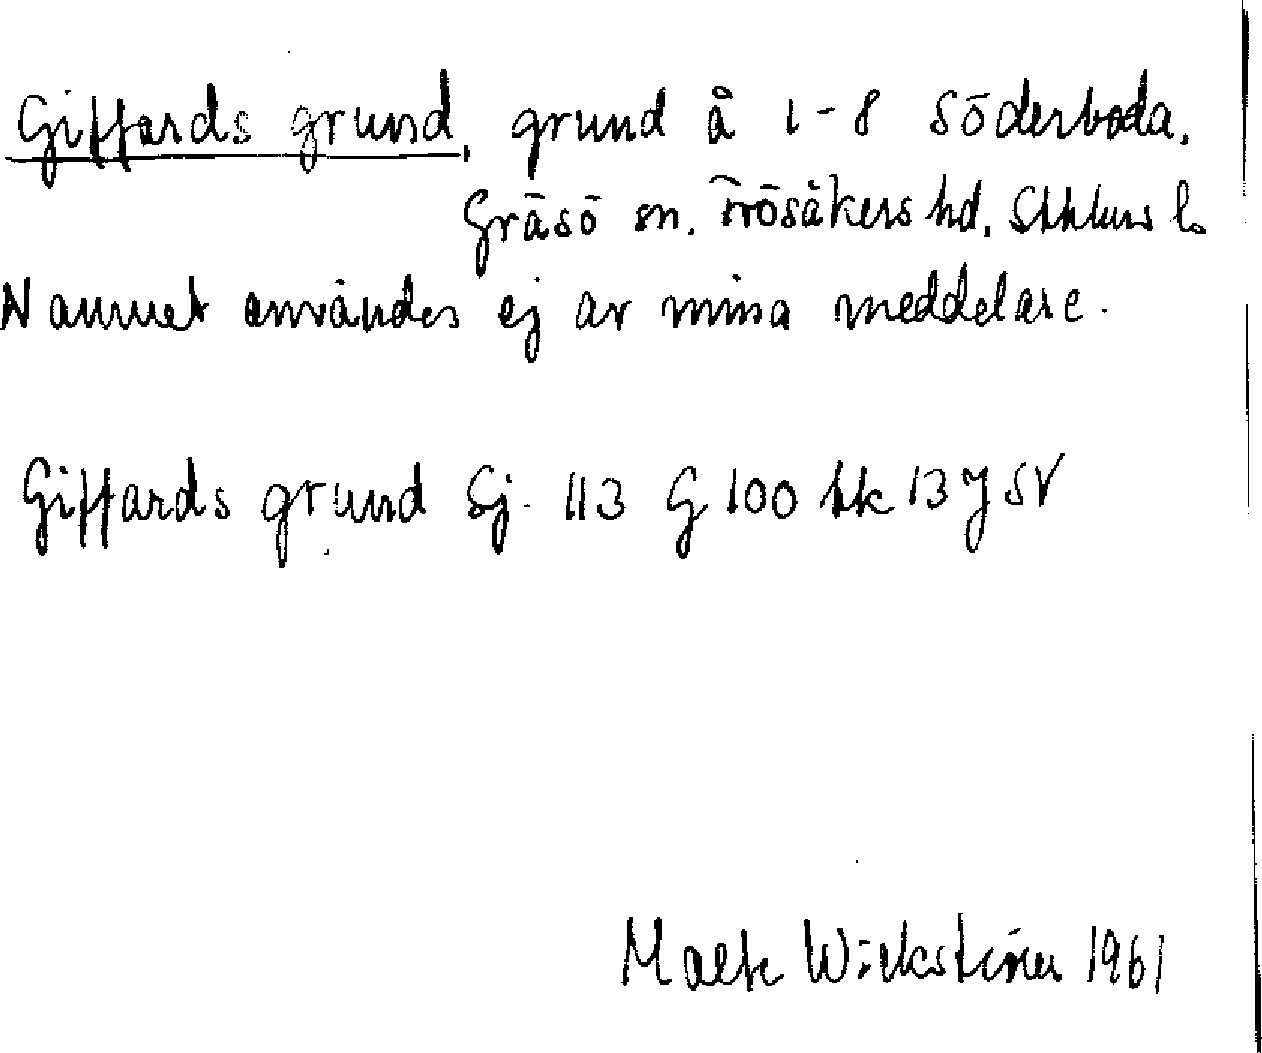 Giffards grund, grund å 1-8 Söderboda,
Gräsö sn. Frösåkers hd, Sthlms l.
Namnet användes ej av mina meddelare.
Giffards grund Sj. 113 G 100 bk 13 J SV
Wickström 1961